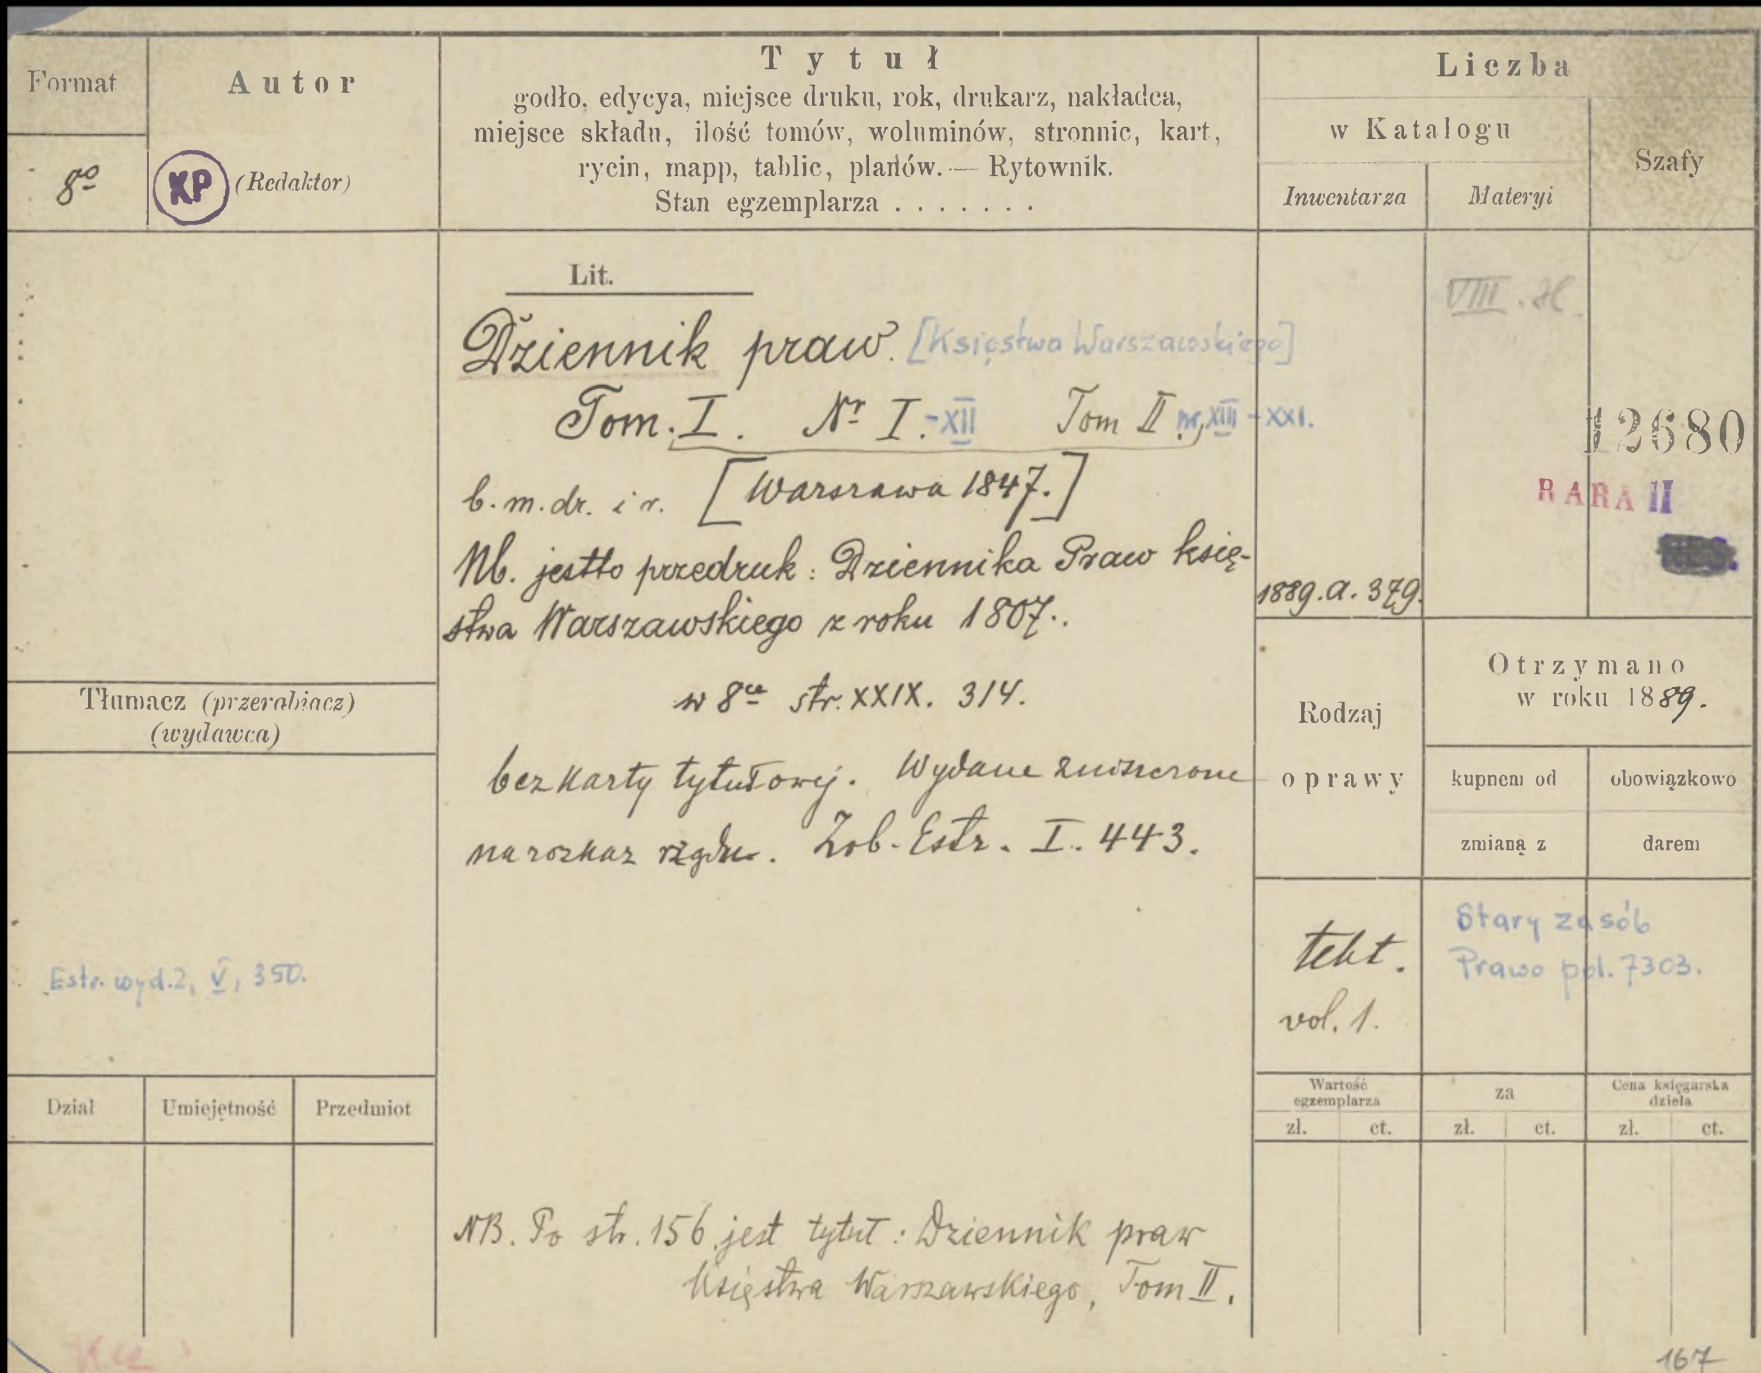 Format
8o
Autor
KP (Redaktor)
Tytuł
godło, edycya, miejsce druku, rok, drukarz, nakładca,
miejsce składu, ilość tomów, woluminów, stronnic, kart,
rycin, mapp, tablic, planów. — Rytownik.
Stan egzemplarza . . . . . . .
Liczba
w Katalogu
Inwentarza
Materyi
Szafy
Lit.
Dziennik praw. [Księstwa Warszawskiego]
Tom. I. Nr I.-XII Tom II. nr XIII-XXI.
b. m. dr. i r. [Warszawa 1847.]
Nb. jestto przedruk: Dziennika Praw księ-
stwa Warszawskiego z roku 1807..
w 8ce str. XXIX. 314.
bez karty tytułowej. Wydane zniszczone
na rozkaz rządu. Zob. Estr. I. 443.
NB. Po str. 156 jest tytuł: Dziennik praw
Księstwa Warszawskiego, Tom II.
VIII. H.
12680
RARA II
1889. a. 379.
Tłumacz (przerabiacz)
(wydawca)
Estr. wyd. 2, V, 350.
Dział
Umiejętność
Przedmiot
Rodzaj
oprawy
Otrzymano
w roku 1889.
kupnem od
obowiązkowo
zmianą z
darem
tekt.
vol. 1.
Stary zasób
Prawo pol. 7303.
Wartość
egzemplarza
za
Cena księgarska
dzieła
zł. ct. zł. ct. zł. ct.
167